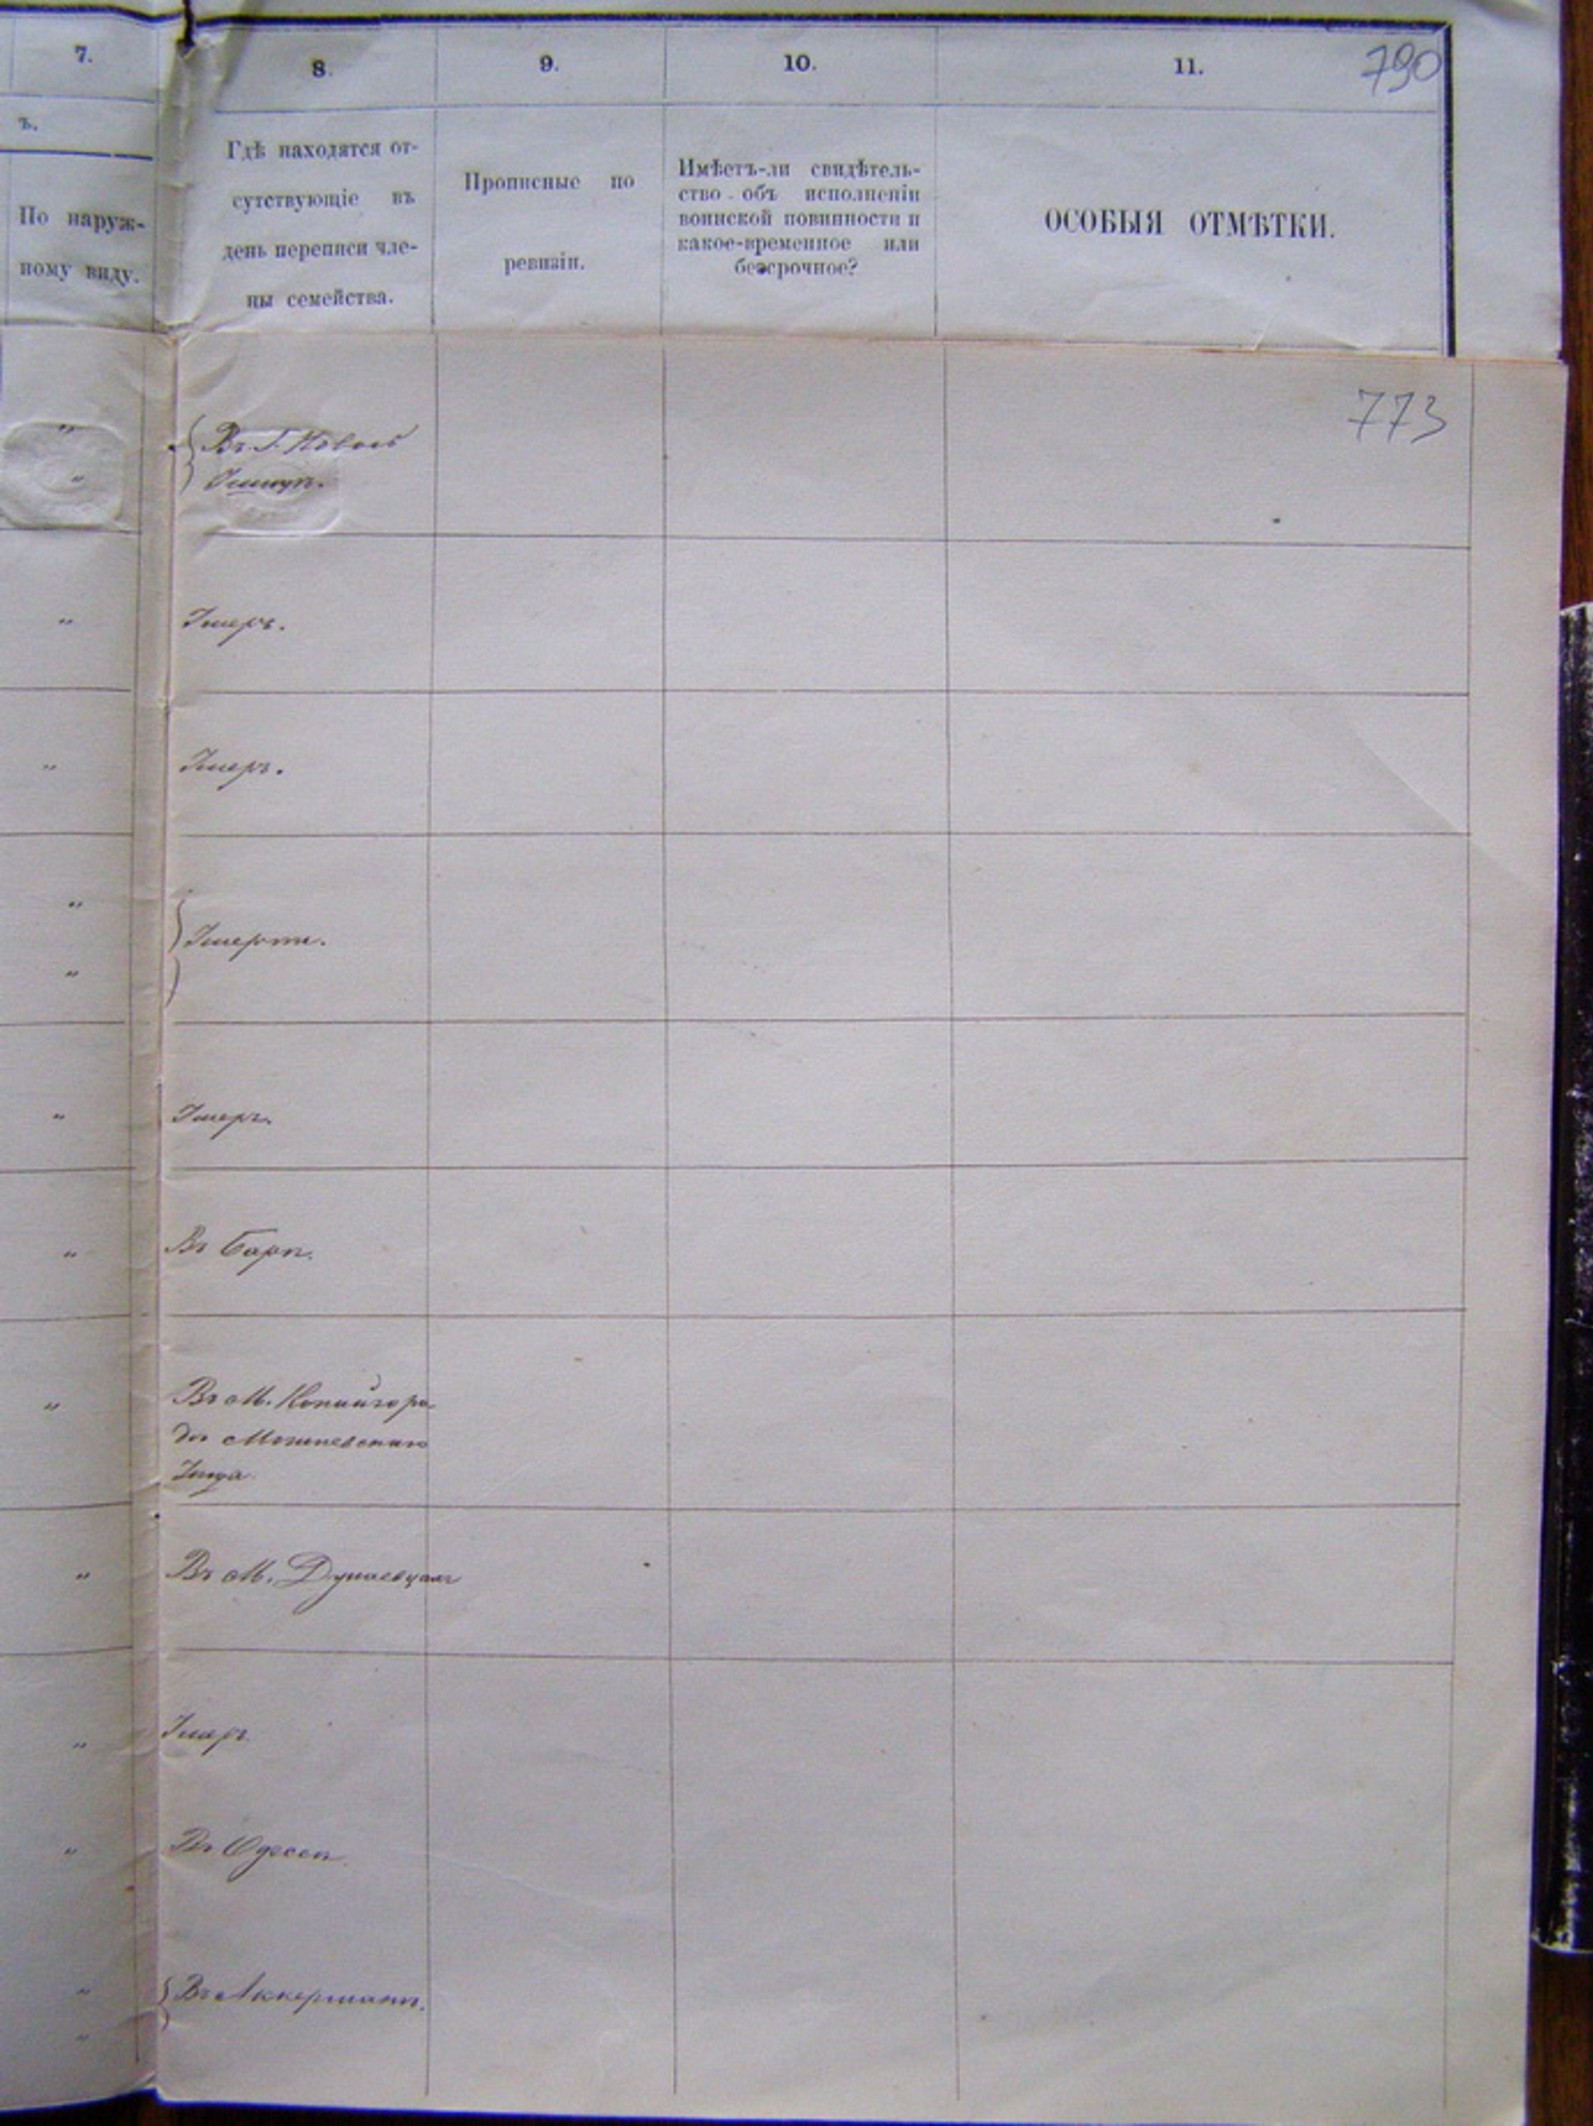 7.
8.
9.
10.
11.
790
ъ.
По наруж-
ному виду.
Гдѣ находятся от-
сутствующіе въ
день переписи чле-
ны семейства.
Прописные по
ревизіи.
Имѣетъ-ли свидѣтель-
ство объ исполненіи
воинской повинности и
какое-временное или
безсрочное?
ОСОБЫЯ ОТМѢТКИ.
773
"
"
Въ Г.
"
Умеръ.
"
Умеръ.
"
"
Умерли.
"
Умеръ.
"
Въ Барѣ.
"
Въ М. Копайгоро-
дѣ Могилевскаго
Уѣзда.
"
Въ М. Дунаевцахъ
"
Умеръ
"
Въ Одессѣ.
"
"
Въ Аккерманѣ.